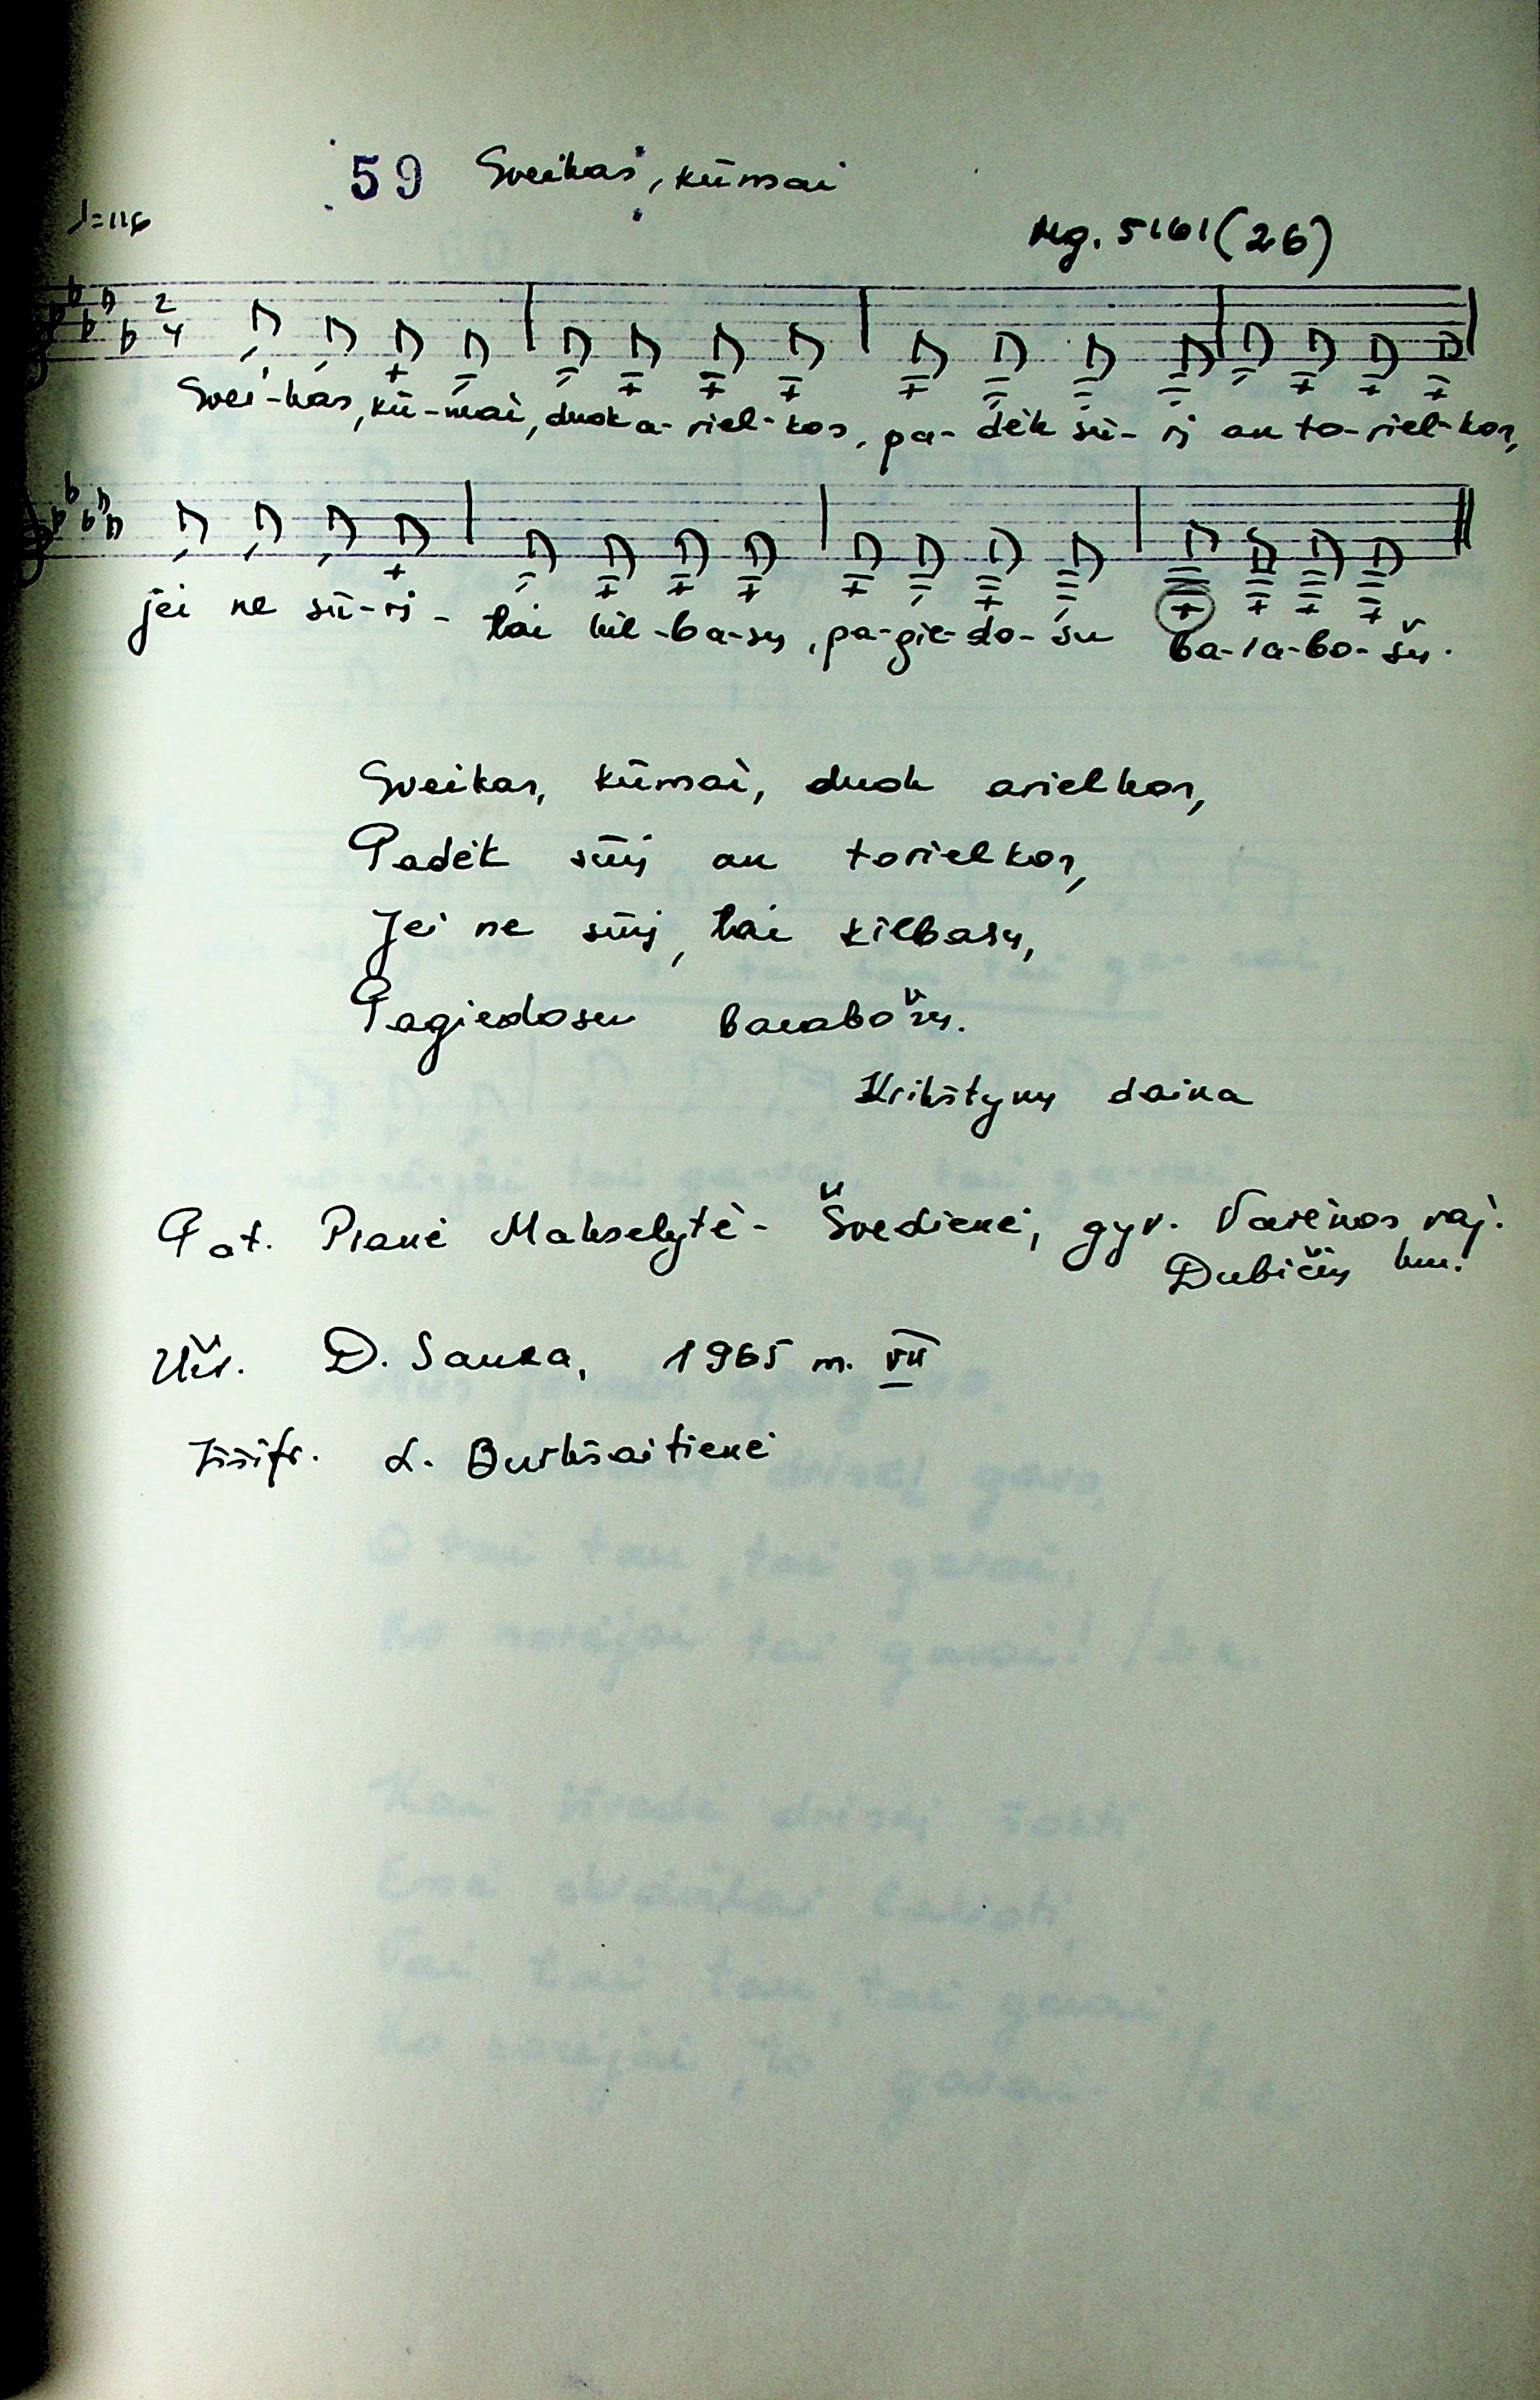 59 Sveikas, kūmai
♩=116
Mg. 5161(26)
2
4
Svei-kas, kū-mai, duok a-riel-kos, pa-dėk sū-rį an to-riel-kos,
jei ne sū-rį - tai kil-ba-sų, pa-gie-do-su ba-la-bo-šų.
Sveikas, kūmai, duok arielkos,
Padėk sūrį an torielkos,
Jei ne sūrį, tai kilbasų,
Pagiedosu
Krikštynų daina
Pat. Pranė Makselytė- Švedienė, gyv. Varėnos raj.
Dubičių km.
Užr. D. Sauka, 1965 m. VII
Iššifr. L. Burkšaitienė